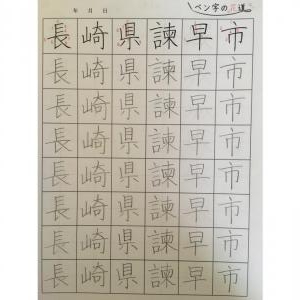 年 月 日
ペン字の花道
長崎県諫早市
長崎県諫早市
長崎県諫早市
長崎県諫早市
長崎県諫早市
長崎県諫早市
長崎県諫早市
長崎県諫早市